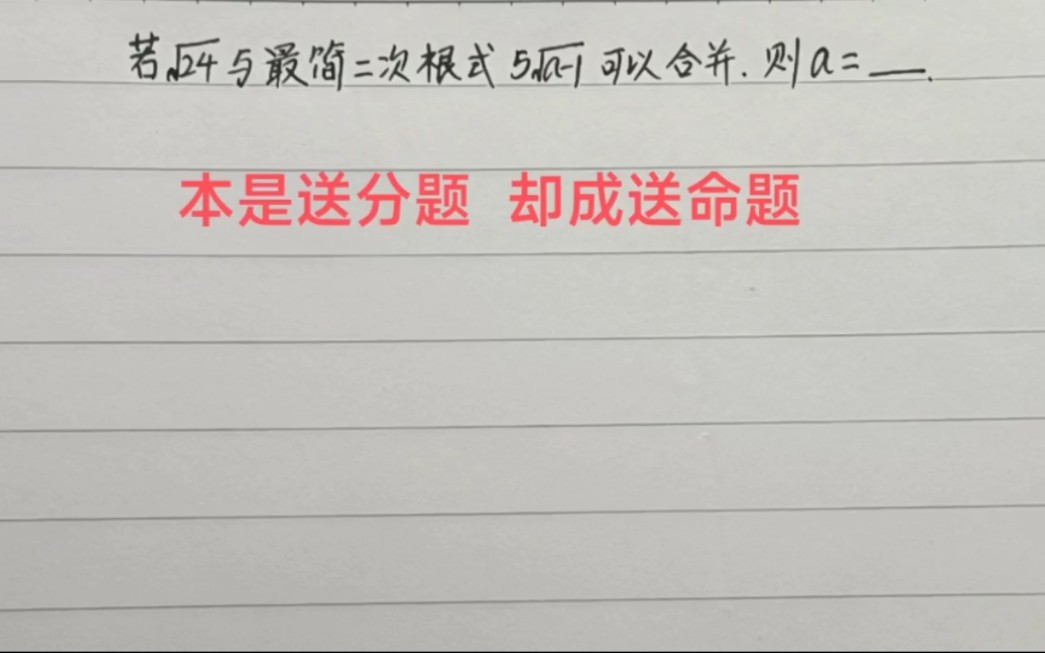 若√24与最简二次根式 5√a-1 可以合并.则a=__.
本是送分题 却成送命题